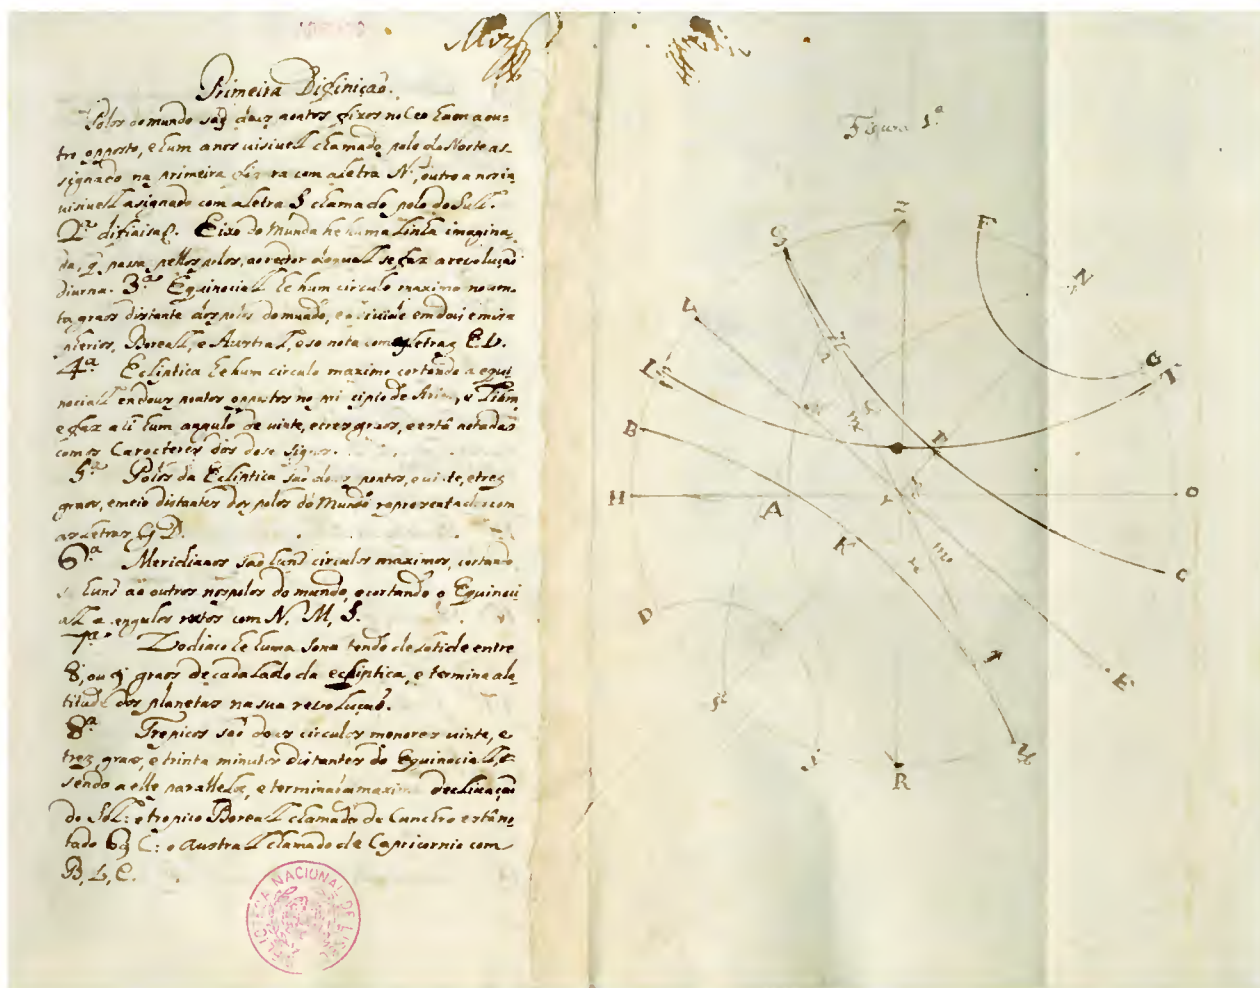 Primeira Difiniçaõ.
Polos do mundo saõ dous pontos fixos no Ceo hum a ou-
tro opposto, e hum a nos uisiuell chamado polo do Norte as-
signado na primeira figura com a letra N, outro a nos in
uisiuell asignado com a letra S chamado polo do Sull.
2ª difinisaõ. Eixo do Mundo he huma linha imagina-
da, q̃ passa pellos polos, ao redor do quall se faz a reuoluçaõ
diurna. 3ª Equinociall he hum circulo maximo nouen-
ta graos distante dos polos do mundo, e o diuide em dous emis
pherios, Boreall, e Austral, e se nota com as letras E V.
4ª Ecliptica he hum circulo maximo cortando a equi-
nociall em dous pontos oppostos no principio de Aries, e Libra
e faz ali hum angulo de uinte, e tres graos, e está notada
com os Caracteres dos dose signos.
5ª Polos da Ecliptica saõ dous pontos, e uinte, e trez
graos, e meio distantes dos polos do Mundo representados com
as letras G D.
6ª Meridianos saõ huns circulos maximos, cortando
se huns aõ outros nos polos do mundo, e cortando o Equinoci
all a angulos retos com N, M, S.
7ª Zodiaco he huma sona tendo de latitude entre
8, ou 9 graos de cada lado da ecliptica, e termina a la-
titude dos planetas na sua reuoluçaõ.
8ª Tropicos saõ dous circulos menores uinte, e
trez graos, e trinta minutos distantes do Equinociall, e
sendo a elle parallelos, e terminaõ a maxima declinaçaõ
do Sol: o tropico Boreall chamado de Cancro está no-
tado 69 C: o Australl chamado de Capricornio com
B, L, C.
BIBLIOTECA NACIONAL DE LISBOA
Figura 1ª
Z
S
F
N
V
L
G
T
B
F
H
A
O
K
C
D
E
R